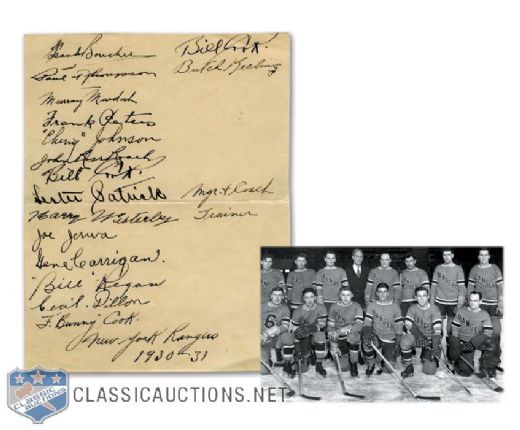 Frank Boucher
Bill Cook.
Paul Thompson
Butch Keeling
Murray Murdoch
Frank Peters
"Ching" Johnson
John Ross Roach
Bill Cook.
Lester Patrick Mgr. & Coach
Harry Westerby Trainer
Joe Jerwa
Gene Carrigan.
"Bill" Regan
Cecil Dillon
F. "Bunny" Cook.
New York Rangers
1930-31
CLASSIC
AUCTIONS
CLASSICAUCTIONS.NET